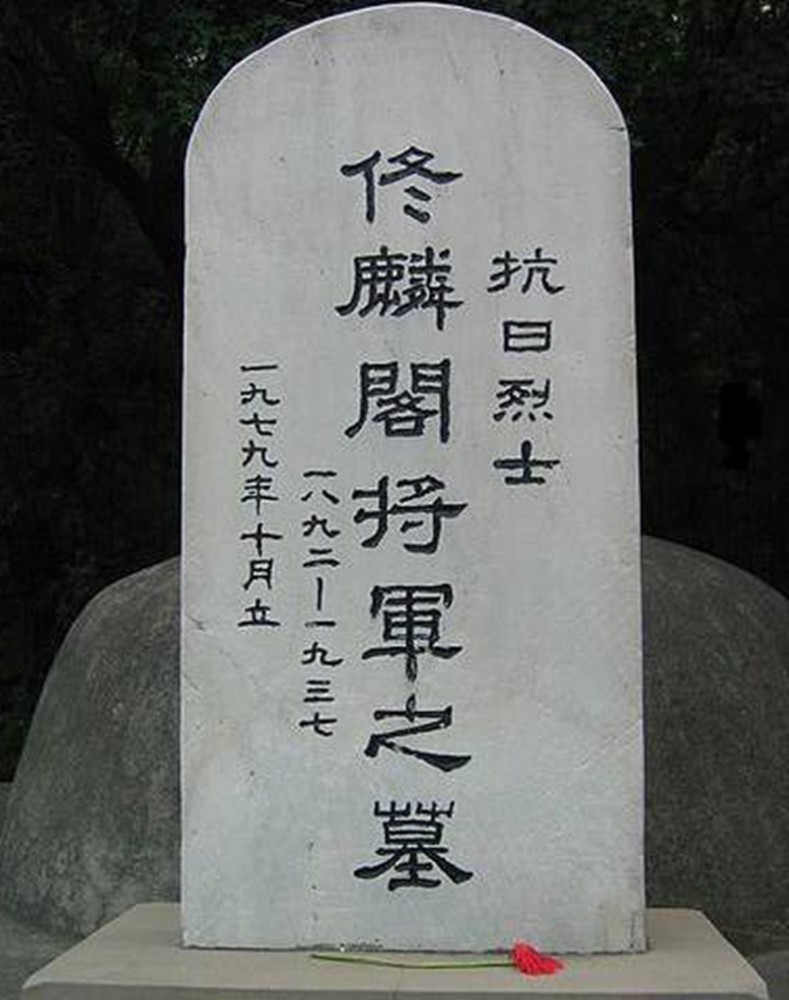 抗日烈士
佟麟閣将軍之墓
一八九二—一九三七
一九七九年十月立